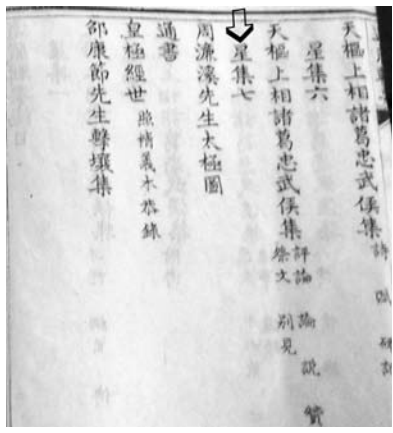 天樞上相諸葛忠武侯集 詩 賦 碑記
星集六
天樞上相諸葛忠武侯集 評論 論 說 贊
祭文 別見
星集七
周濂溪先生太極圖
通書
皇極經世
邵康節先生擊壤集